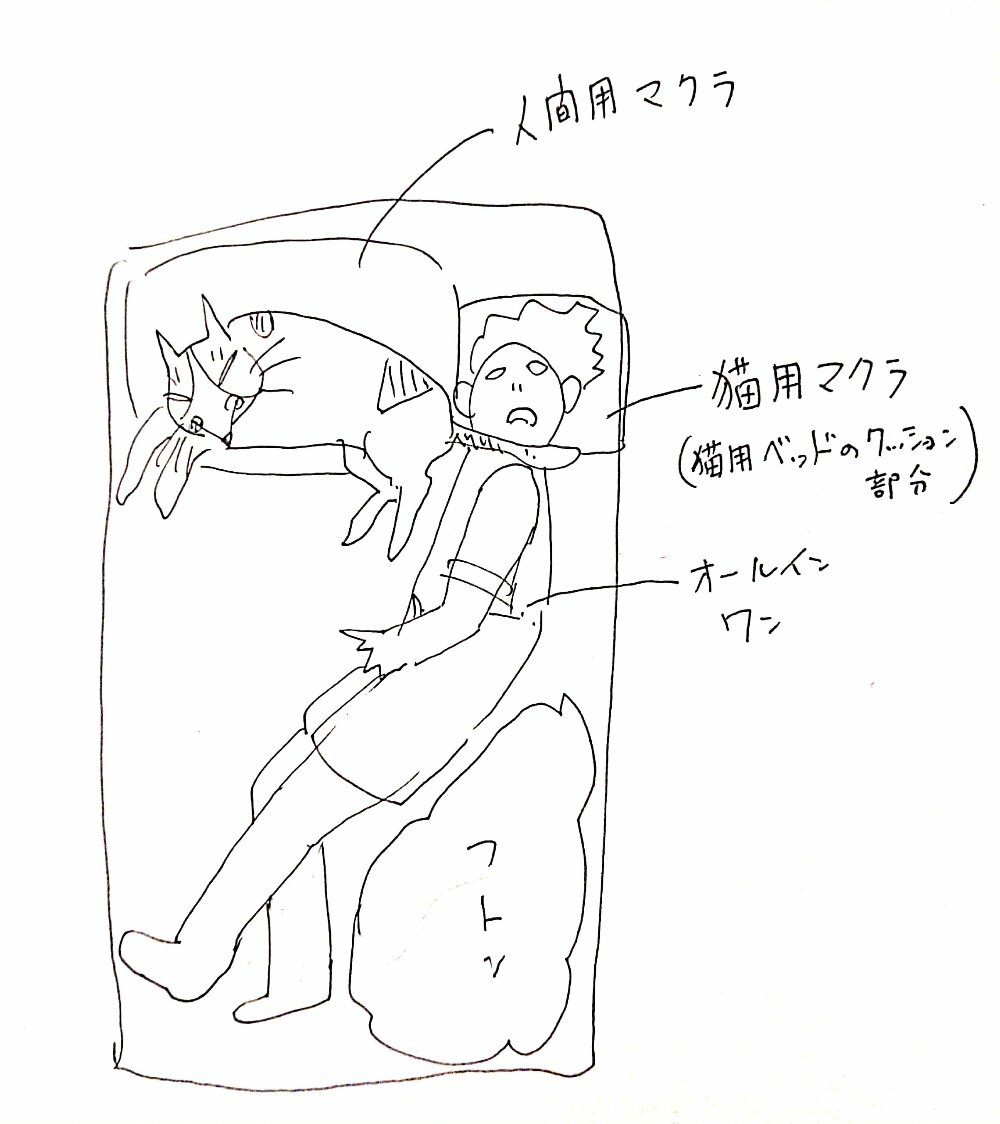 人間用マクラ
猫用マクラ
(猫用ベッドのクッション
部分)
オールイン
ワン
フトン